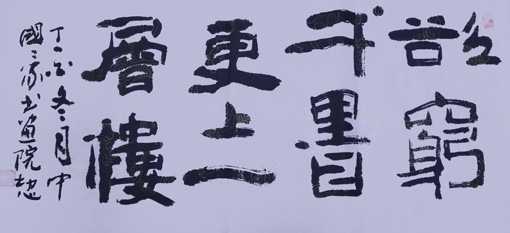 欲窮
千里目
更上一
層樓
丁酉冬月中
國家书画院